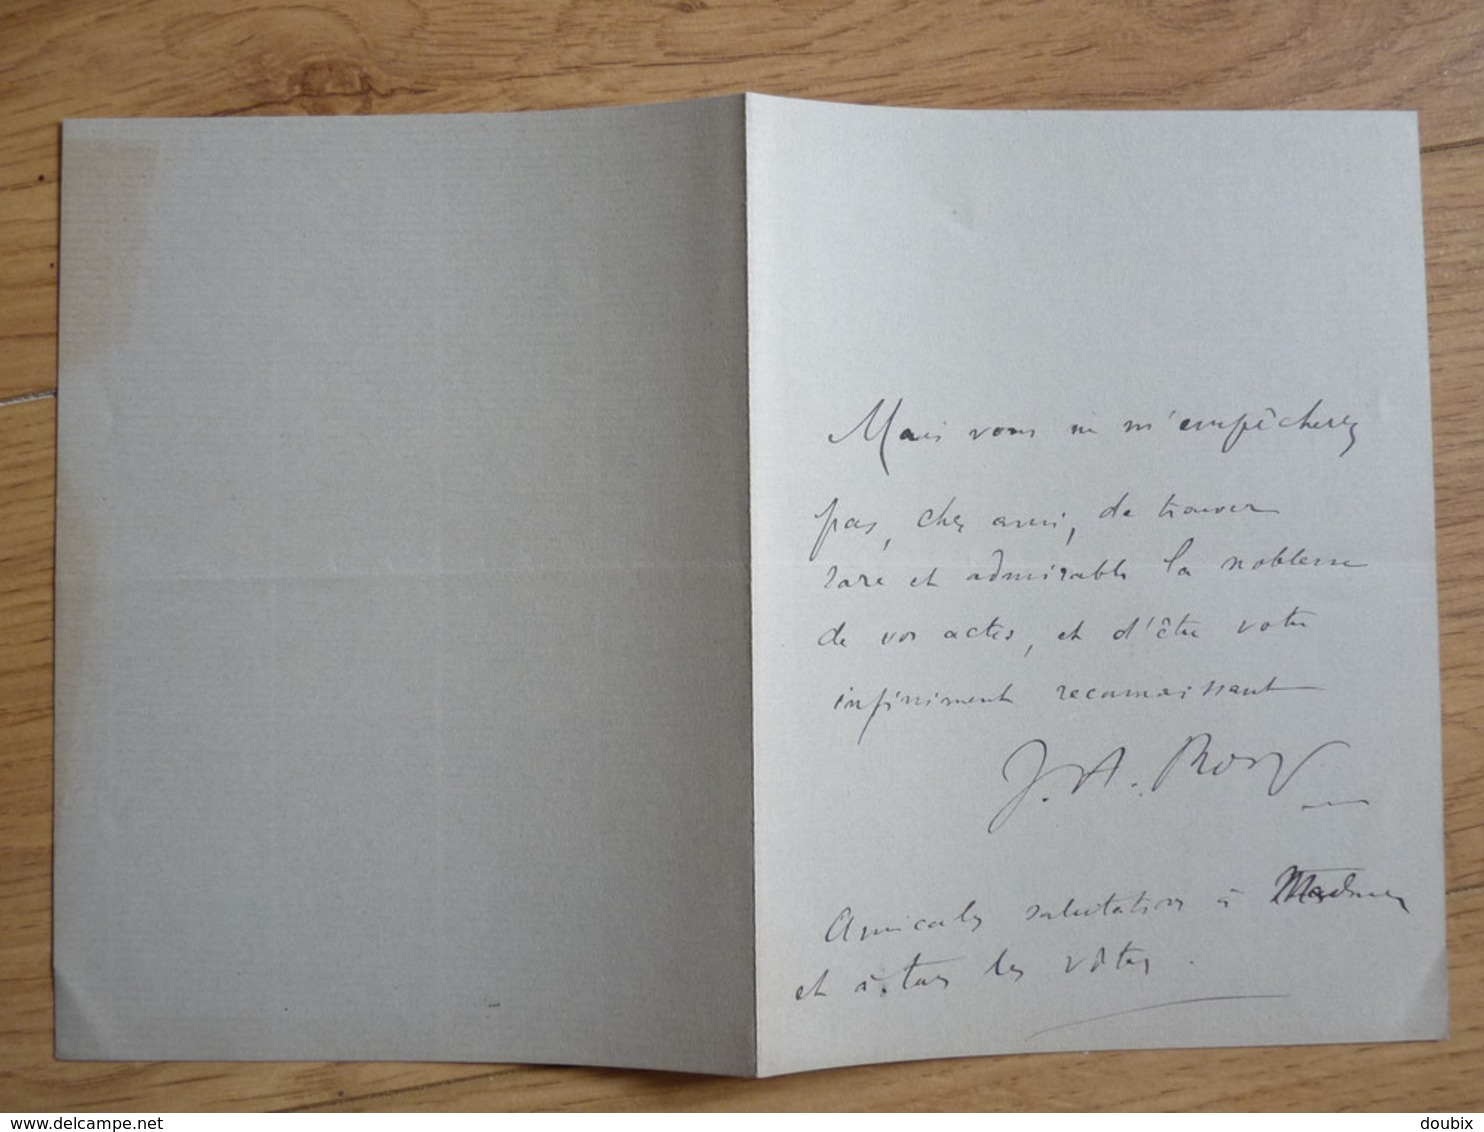 Mais vous ne m'empêcherez
pas, cher ami, de trouver
rare et admirable la noblesse
de vos actes, et d'être votre
infiniment reconnaissant
J. H. Rosny
Amicales salutations à Madame
et à tous les vôtres.
www.delcampe.net
doubix